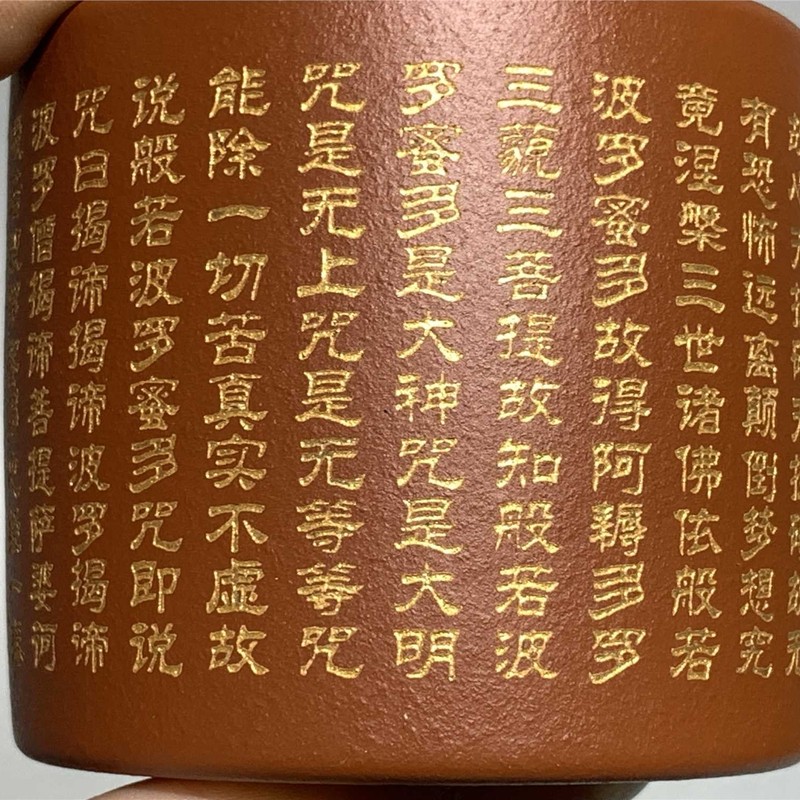 有恐怖远离颠倒梦想究
竟涅槃三世诸佛依般若
波罗蜜多故得阿耨多罗
三藐三菩提故知般若波
罗蜜多是大神咒是大明
咒是无上咒是无等等咒
能除一切苦真实不虚故
说般若波罗蜜多咒即说
咒曰揭谛揭谛波罗揭谛
波罗僧揭谛菩提萨婆诃